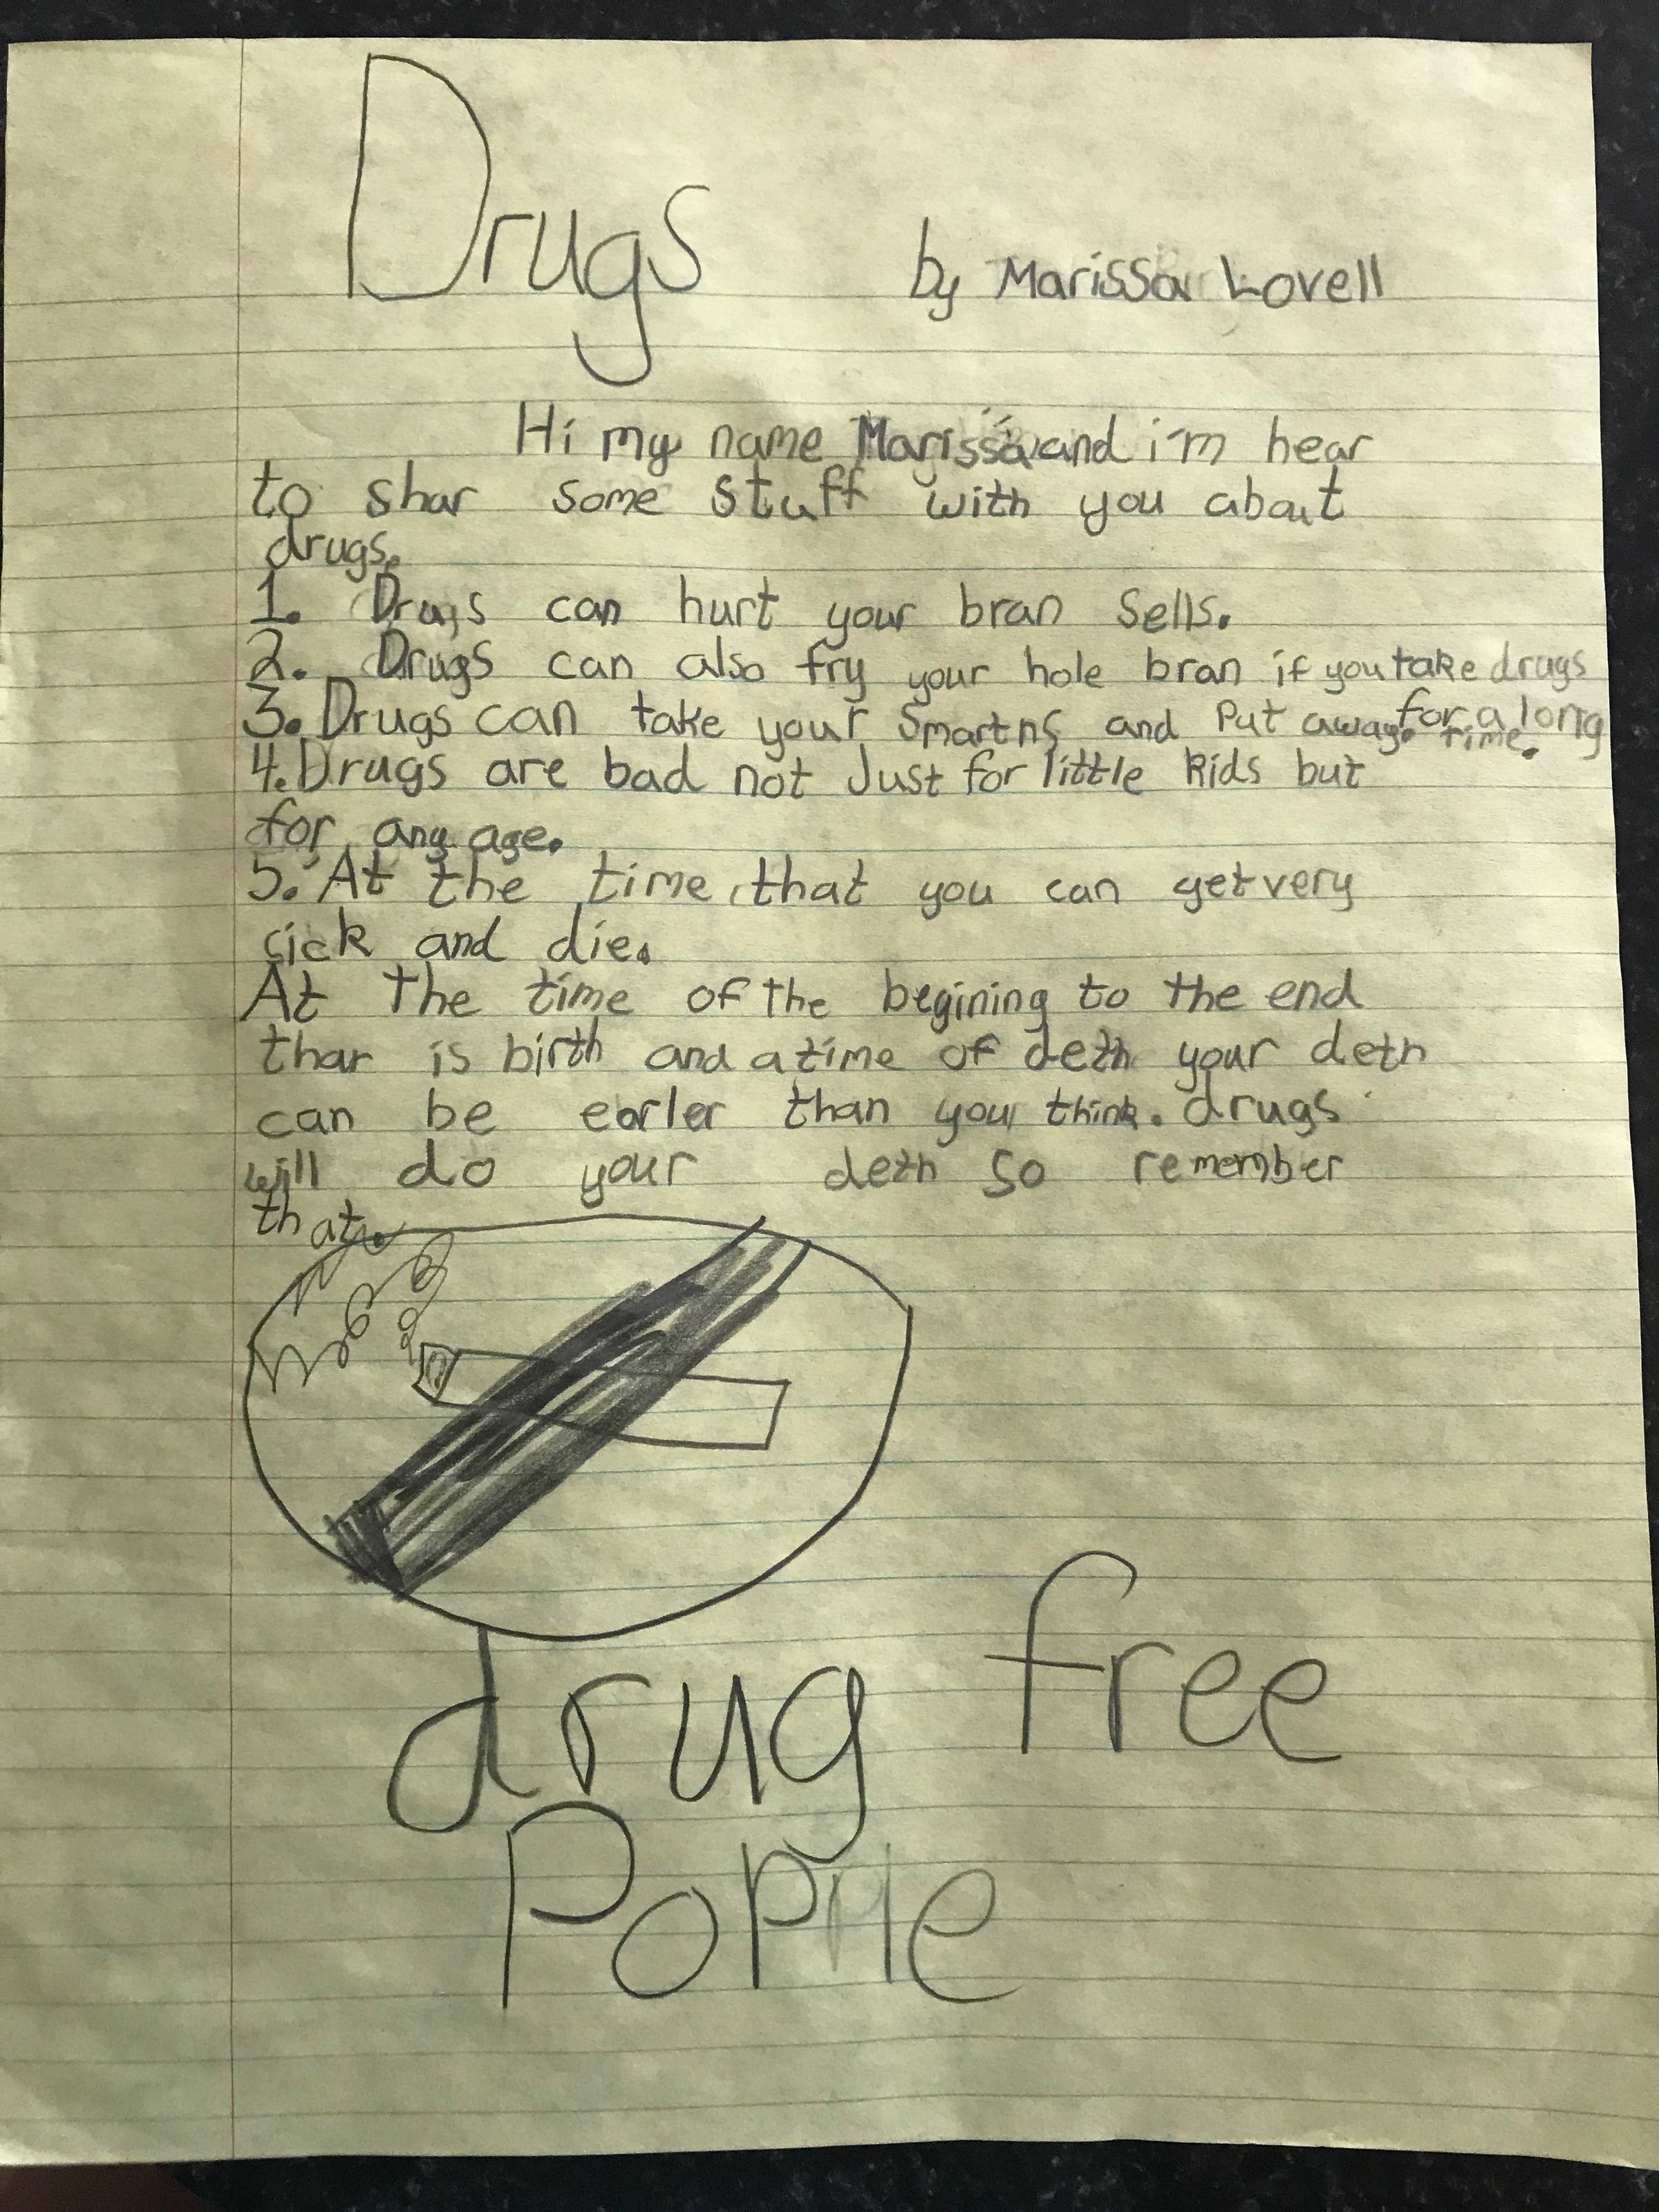 Drugs
by Marissa Lovell
Hi my name Marissa and i'm hear
to shar some stuff with you about
drugs.
1. Drugs can hurt your bran sells.
2. Drugs can also fry your hole bran if you take drugs
for a long time.
3. Drugs can take your smartns and put away.
4. Drugs are bad not Just for little kids but
for any age.
5. At the time that you can get very
sick and die.
At the time of the begining to the end
thar is birth and a time of deth your deth
can be earler than you think. drugs
will do your deth so remember
that.
drug free
Pople